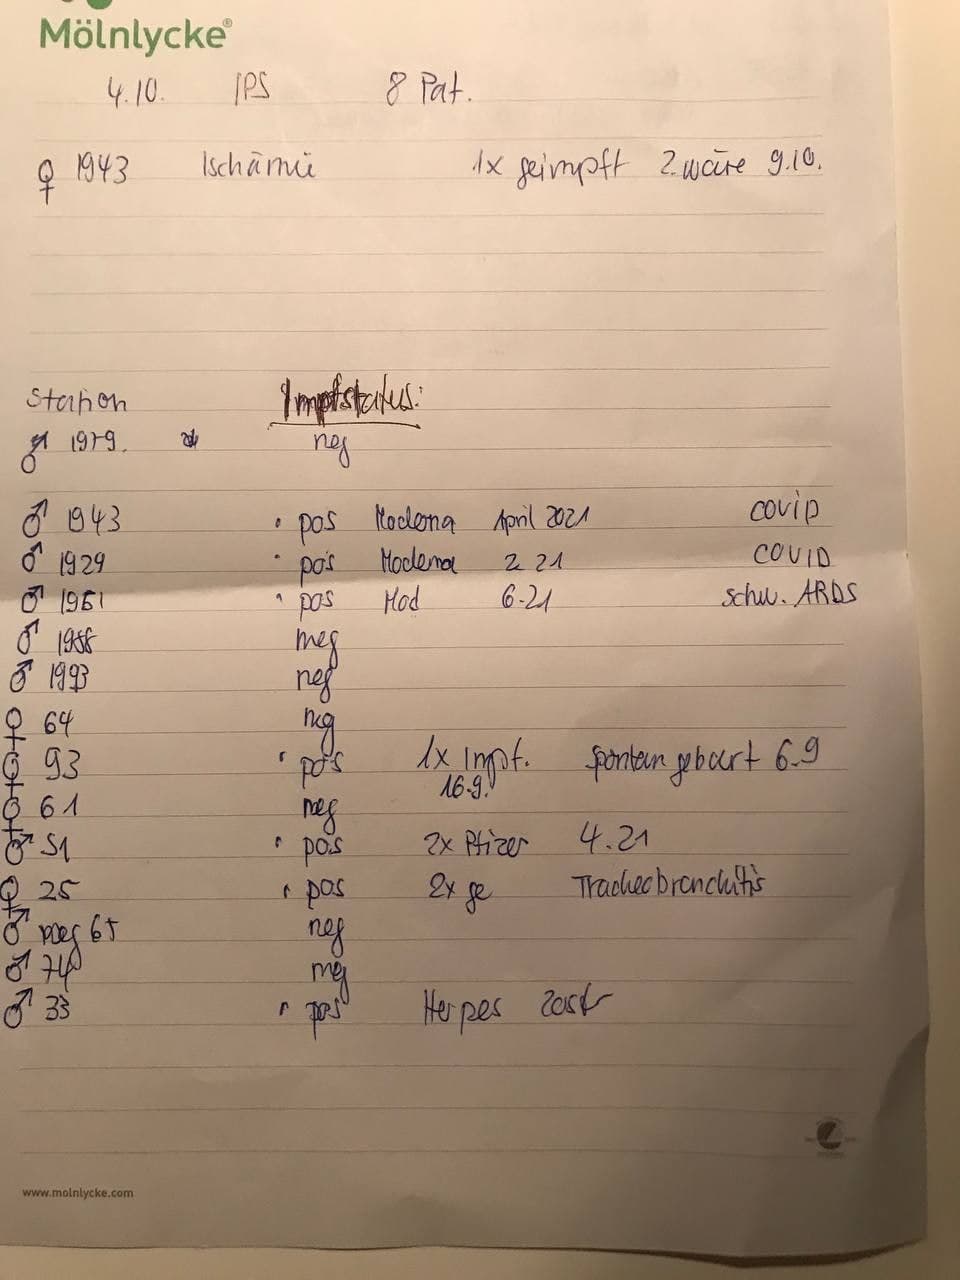 Mölnlycke®
4.10. IPS 8 Pat.
♀ 1943 Ischämie 1x geimpft 2. wäre 9.10.
Station Impfstatus:
♂ 1979. neg
♂ 1943 pos Moderna April 2021 COVID
♂ 1929 pos Moderna 2 21 COVID
♂ 1951 pos Mod 6.21 schw. ARDS
♂ neg
♂ 1993 neg
♀ 64 neg
♀ 93 pos 1x Impf. Spontangeburt 6.9
16.9.
♀ 61 neg
♂ 51 pos 2x Pfizer 4.21
♀ 25 pos 2x ge Tracheobronchitis
♂ 65 neg
♂ 74 neg
♂ 33 pos Herpes Zost
www.molnlycke.com